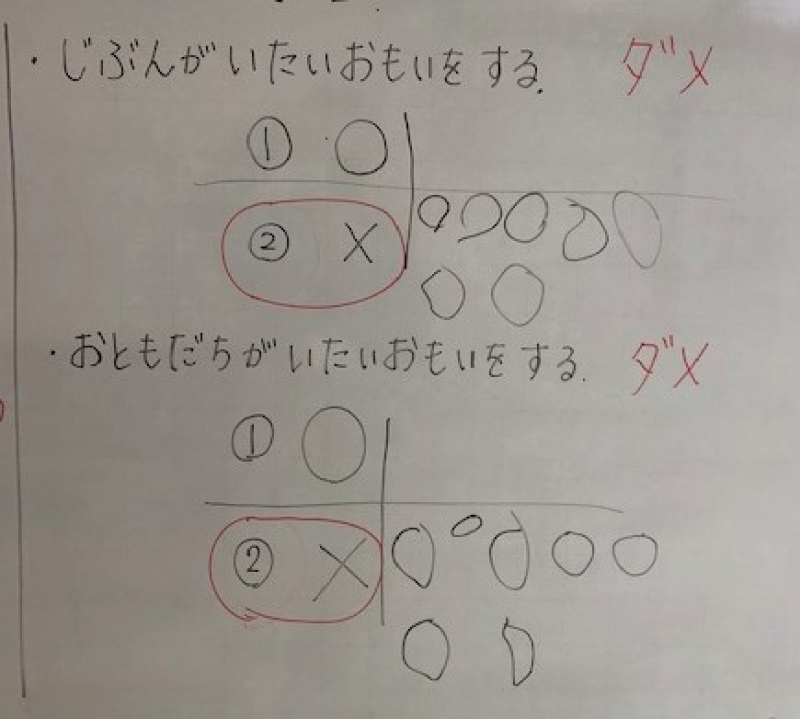 ・じぶんがいたいおもいをする。 ダメ
① ○
② ×
・おともだちがいたいおもいをする。 ダメ
① ○
② ×